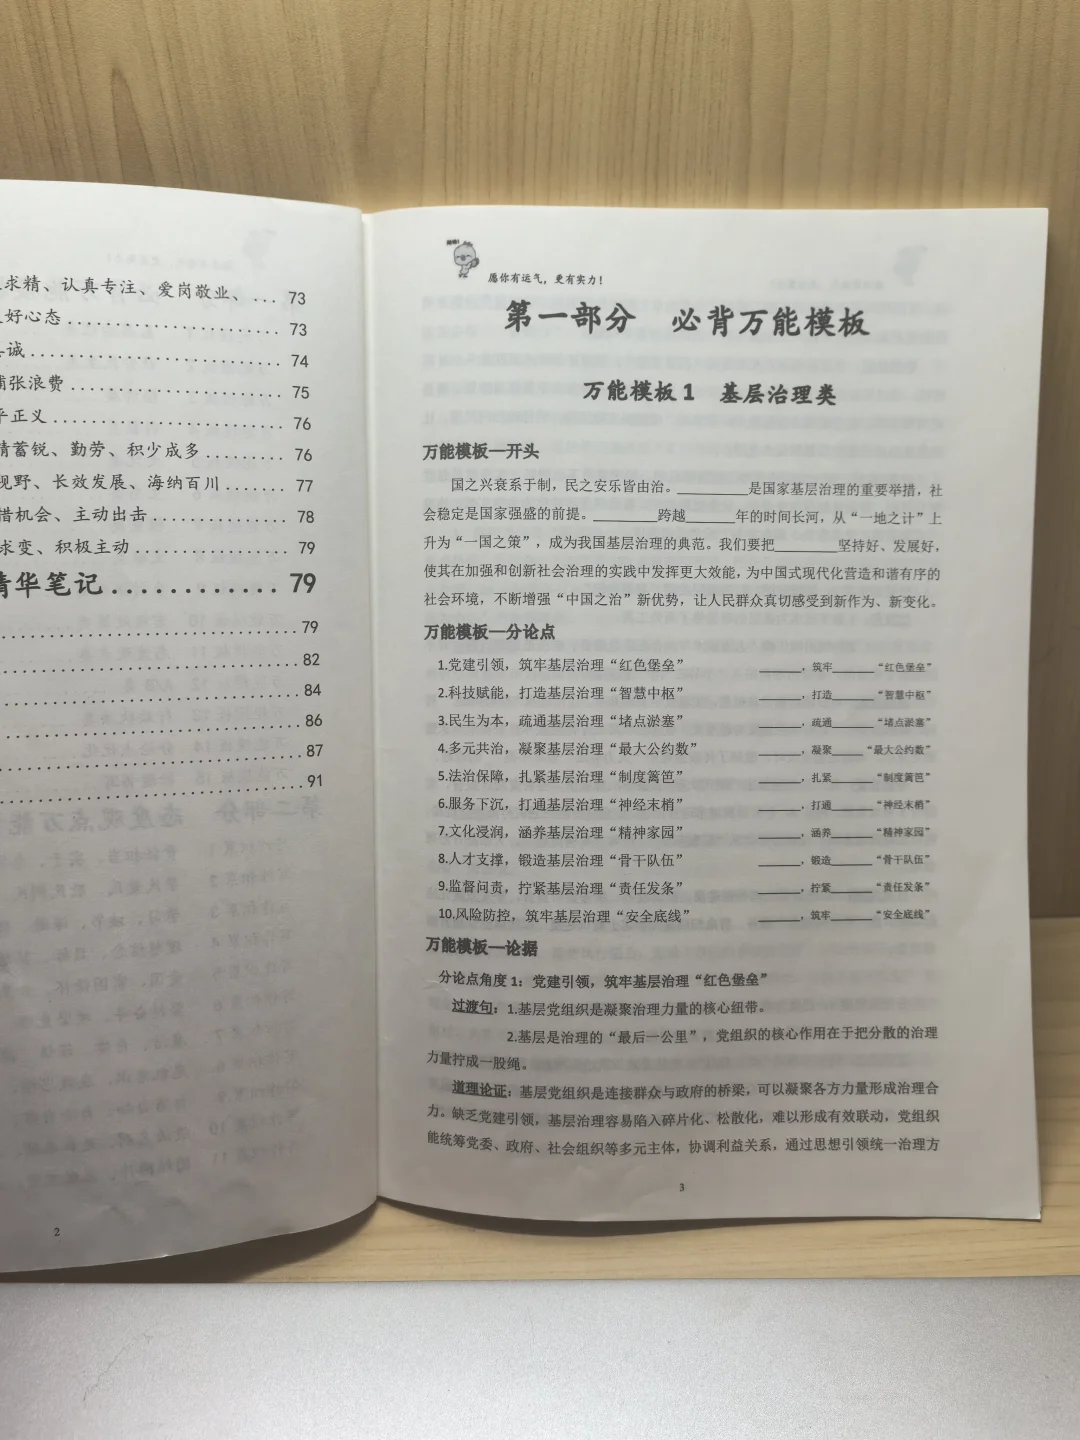 求精、认真专注、爱岗敬业、... 73
好心态........................ 73
诚............................ 74
张浪费........................ 75
平正义........................ 76
蓄锐、勤劳、积少成多......... 76
视野、长效发展、海纳百川....... 77
机会、主动出击............... 78
求变、积极主动................ 79
精华笔记............. 79
79
82
84
86
87
91
2
愿你有运气，更有实力！
第一部分 必背万能模板
万能模板1 基层治理类
万能模板—开头
国之兴衰系于制，民之安乐皆由治。_________是国家基层治理的重要举措，社
会稳定是国家强盛的前提。________跨越______年的时间长河，从“一地之计”上
升为“一国之策”，成为我国基层治理的典范。我们要把________坚持好、发展好，
使其在加强和创新社会治理的实践中发挥更大效能，为中国式现代化营造和谐有序的
社会环境，不断增强“中国之治”新优势，让人民群众真切感受到新作为、新变化。
万能模板—分论点
1.党建引领，筑牢基层治理“红色堡垒” ______，筑牢______“红色堡垒”
2.科技赋能，打造基层治理“智慧中枢” ______，打造______“智慧中枢”
3.民生为本，疏通基层治理“堵点淤塞” ______，疏通______“堵点淤塞”
4.多元共治，凝聚基层治理“最大公约数” ______，凝聚____“最大公约数”
5.法治保障，扎紧基层治理“制度篱笆” ______，扎紧______“制度篱笆”
6.服务下沉，打通基层治理“神经末梢” ______，打通______“神经末梢”
7.文化浸润，涵养基层治理“精神家园” ______，涵养______“精神家园”
8.人才支撑，锻造基层治理“骨干队伍” ______，锻造______“骨干队伍”
9.监督问责，拧紧基层治理“责任发条” ______，拧紧______“责任发条”
10.风险防控，筑牢基层治理“安全底线” ______，筑牢______“安全底线”
万能模板—论据
分论点角度1：党建引领，筑牢基层治理“红色堡垒”
过渡句：1.基层党组织是凝聚治理力量的核心纽带。
2.基层是治理的“最后一公里”，党组织的核心作用在于把分散的治理
力量拧成一股绳。
道理论证：基层党组织是连接群众与政府的桥梁，可以凝聚各方力量形成治理合
力。缺乏党建引领，基层治理容易陷入碎片化、松散化，难以形成有效联动，党组织
能统筹党委、政府、社会组织等多元主体，协调利益关系，通过思想引领统一治理方
3